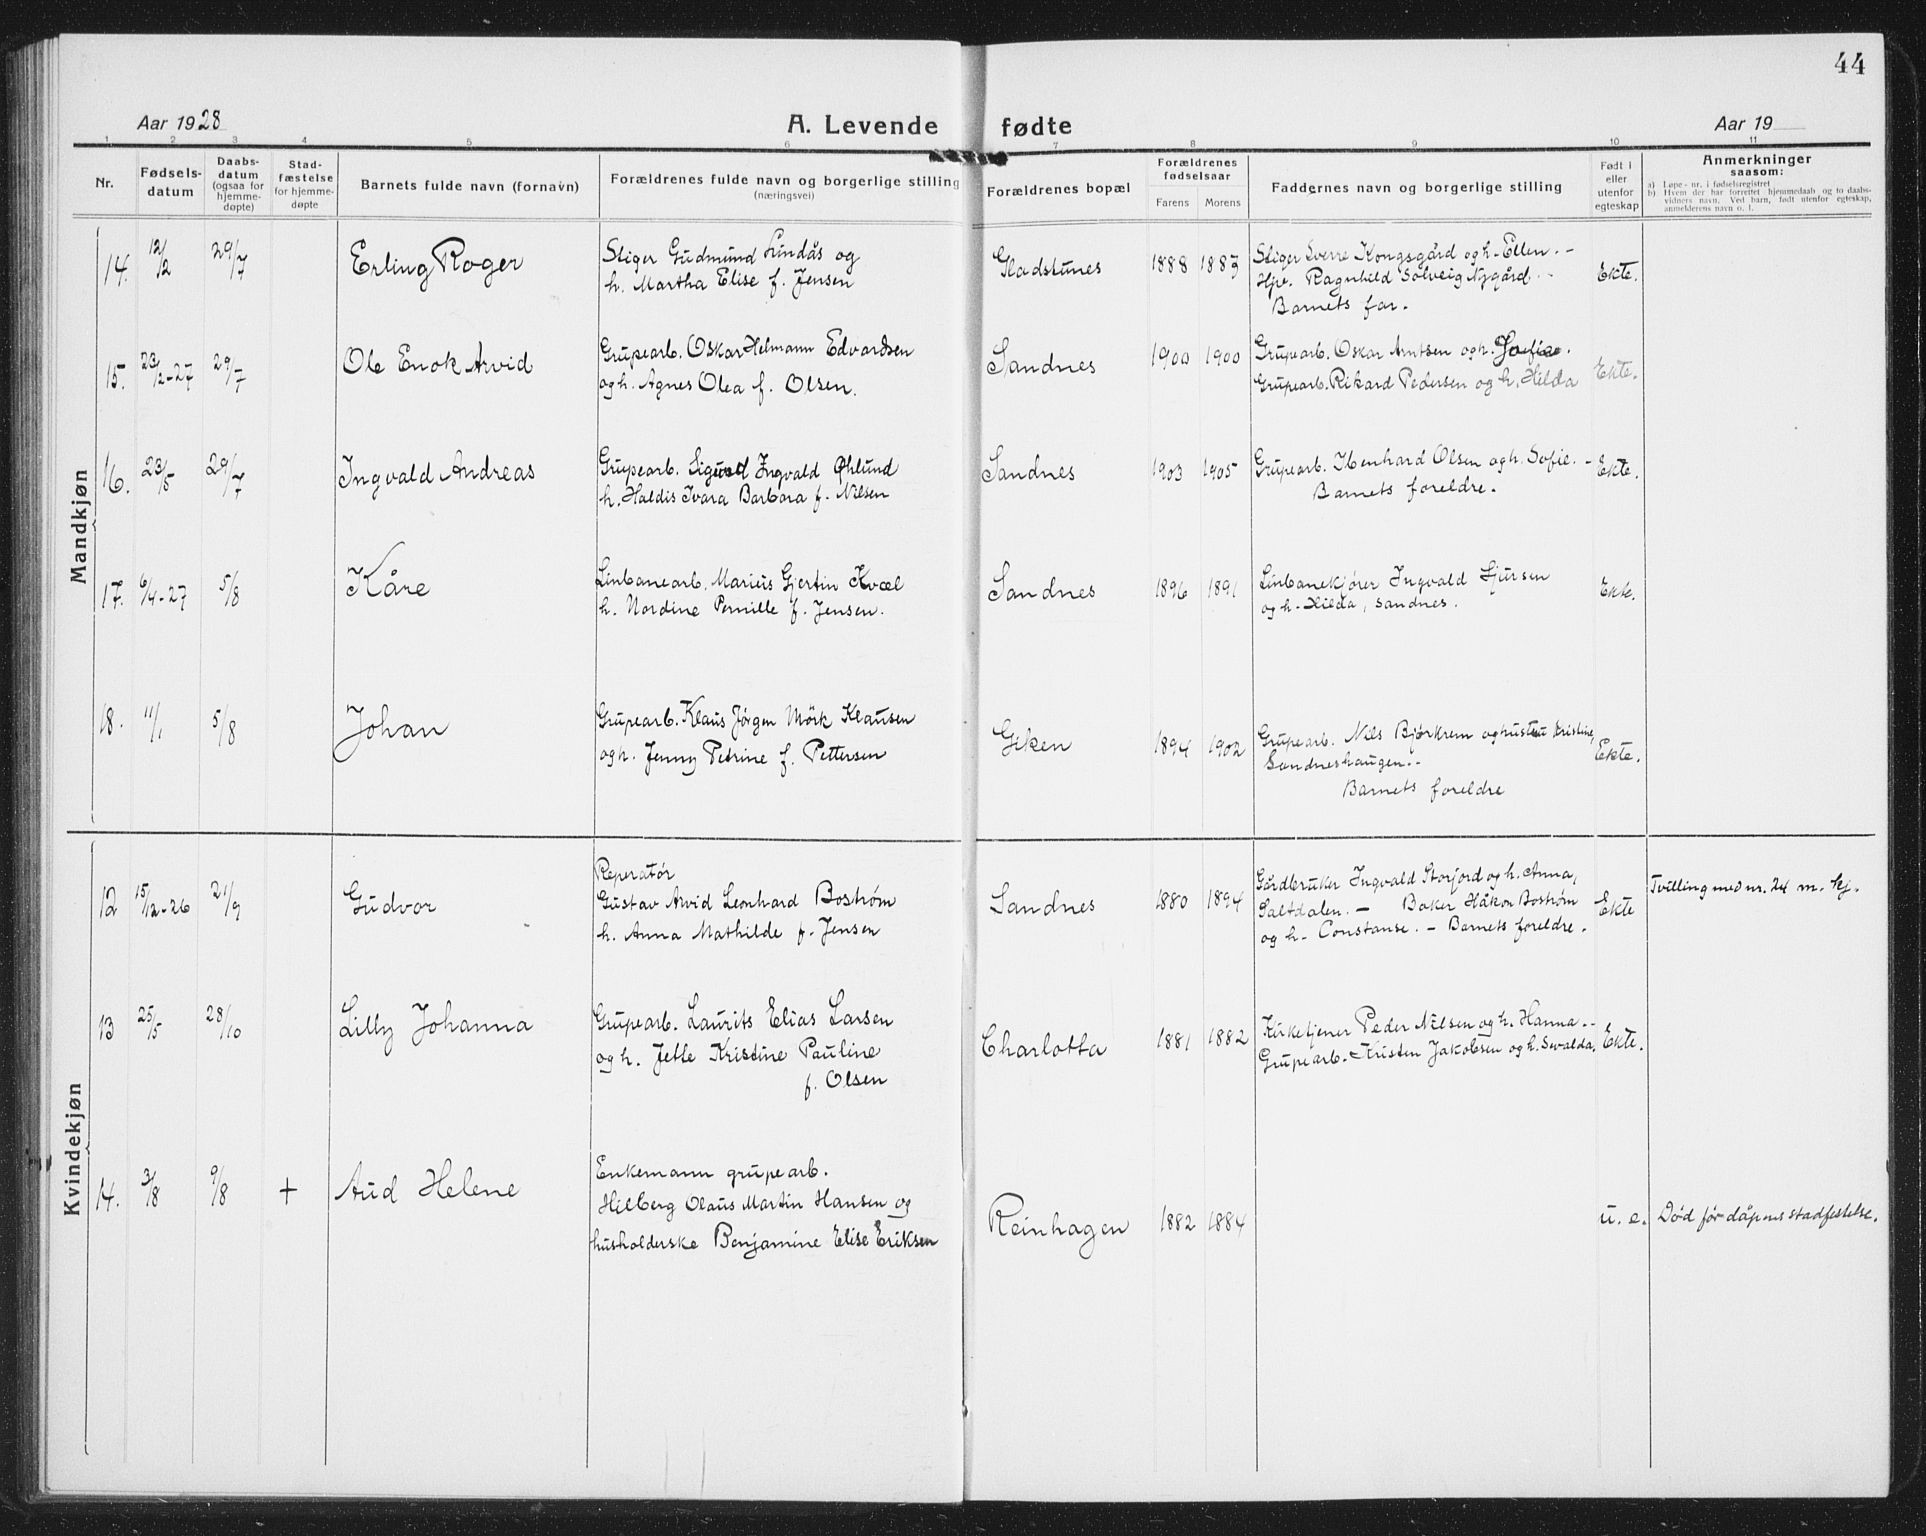 44
Aar 1928
A. Levende fødte
Aar 19
1 2 3 4 5 6 7 8 9 10 11
Nr.
Fødsels-
datum
Daabs-
datum
(ogsaa for
hjemme-
døpte)
Stad-
fæstelse
for hjemme-
døpte
Barnets fulde navn (fornavn)
Forældrenes fulde navn og borgerlige stilling
(næringsvei)
Forældrenes bopæl
Forældrenes
fødselsaar
Farens Morens
Faddernes navn og borgerlige stilling
Født i
eller
utenfor
egteskap
Anmerkninger
saasom:
a) Løpe-nr. i fødselsregistret
b) Hvem der har forrettet hjemmedaab og to daabs-
vidners navn. Ved barn, født utenfor egteskap,
anmelderens navn o. l.
Mandkjøn
14. 12/2 29/7 Erling Roger
Stiger Gudmund Lindås og
h. Martha Elise f. Jensen
Gladstunes 1888 1889
Stiger Sverre Kongsgård og h. Ellen. -
Hpe. Ragnhild Solveig Nygård. -
Barnets far.
Ekte.
15. 23/2-27 29/7 Ole Enok Arvid
Grupearb. Oskar Helmann Edvardsen
og h. Agnes Olea f. Olsen.
Sandnes 1900 1900
Grupearb. Oskar Arntsen og h. Sofie.
Grupearb. Rikard Pedersen og h. Hilda
Ekte.
16. 23/5 29/7 Ingvald Andreas
Grupearb. Sigurd Ingvald Øhlund
h. Haldis Ivara Barbara f. Nilsen
Sandnes 1903 1905
Grupearb. Ibenhard Olsen og h. Sofie. -
Barnets foreldre.
Ekte.
17. 6/4-27 5/8 Kåre
Linbanearb. Marius Gjertin Kvæl
h. Nordine Pernille f. Jensen.
Sandnes 1896 1891
Linbanekjører Ingvald Sjursen
og h. Hilda, Sandnes.
Ekte.
18. 11/1 5/8 Johan
Grupearb. Klaus Jørgen Mörk Klausen
og h. Jenny Petrine f. Pettersen
Giken 1894 1902
Grupearb. Nils Bjørkrem og hustru Kristine,
Sandneshaugen. -
Barnets foreldre
Ekte.
Kvindekjøn
12 15/12-26 21/9 Gudvor
Reperatør
Gustav Arvid Leonhard Boström
h. Anna Mathilde f. Jensen
Sandnes 1880 1894
Gårdbruker Ingvald Storjord og h. Anna,
Saltdalen. - Baker Håkon Boström
og h. Constanse. - Barnets foreldre.
Ekte
Tvilling med nr. 24 m. kj.
13 25/5 28/10 Lilly Johanna
Grupearb. Laurits Elias Larsen
og h. Jette Kristine Pauline
f. Olsen
Charlotta 1881 1882
Kirketjener Peder Nilsen og h. Hanna. -
Grupearb. Kristen Jakobsen og h. Sevalda.
Ekte.
14. 3/8 9/8 + Aud Helene
Enkemann grupearb.
Hilberg Olaus Martin Hansen og
husholderske Benjamine Elise Eriksen
Reinhagen 1882 1884
u. e. Död før dåpens stadfestelse.